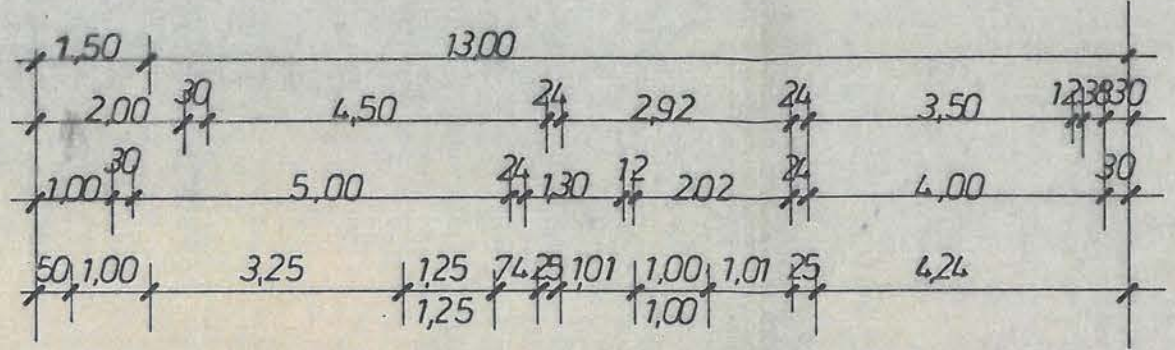 1,50 13,00
2,00 30 4,50 24 2,92 24 3,50 12 38 30
1,00 30 5,00 24 1,30 12 2,02 24 4,00 30
50 1,00 3,25 1,25 74 25 1,01 1,00 1,01 25 4,24
1,25 1,00